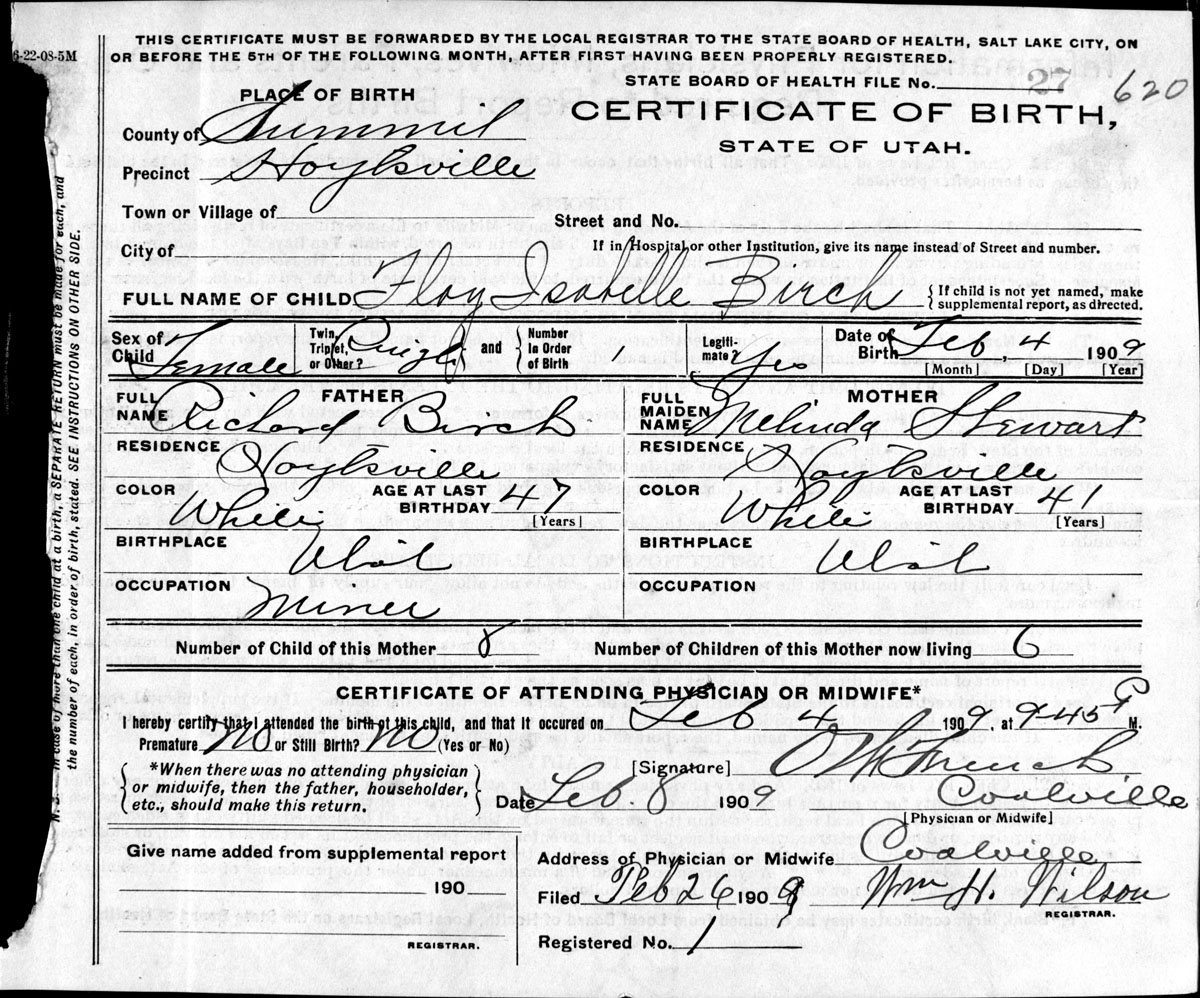 6-22-08-5M
THIS CERTIFICATE MUST BE FORWARDED BY THE LOCAL REGISTRAR TO THE STATE BOARD OF HEALTH, SALT LAKE CITY, ON
OR BEFORE THE 5TH OF THE FOLLOWING MONTH, AFTER FIRST HAVING BEEN PROPERLY REGISTERED.
STATE BOARD OF HEALTH FILE No. 27 620
PLACE OF BIRTH
CERTIFICATE OF BIRTH,
STATE OF UTAH.
County of Summit
Precinct Hoytsville
Town or Village of
Street and No.
City of
If in Hospital or other Institution, give its name instead of Street and number.
FULL NAME OF CHILD Floy Isabelle Birch {If child is not yet named, make supplemental report, as directed.
Sex of Child Female Twin, Triplet, or Other? Single and {Number In Order of Birth Legiti-mate? Yes Date of Birth Feb, 4 1909
[Month] [Day] [Year]
FATHER
FULL NAME Richard Birch
RESIDENCE Hoytsville
COLOR White AGE AT LAST BIRTHDAY 47 [Years]
BIRTHPLACE Utah
OCCUPATION Miner
MOTHER
FULL MAIDEN NAME Melinda Stewart
RESIDENCE Hoytsville
COLOR White AGE AT LAST BIRTHDAY 41 [Years]
BIRTHPLACE Utah
OCCUPATION
Number of Child of this Mother 8 Number of Children of this Mother now living 6
CERTIFICATE OF ATTENDING PHYSICIAN OR MIDWIFE*
I hereby certify that I attended the birth of this child, and that it occured on Feb 4 1909, at 9-45 P M.
Premature No or Still Birth? No (Yes or No)
{*When there was no attending physician
or midwife, then the father, householder,
etc., should make this return.}
[Signature] French
Date Feb. 8 1909 Coalville
[Physician or Midwife]
Give name added from supplemental report
190
REGISTRAR.
Address of Physician or Midwife Coalville
Filed Feb 26 1909 Wm H. Wilson
REGISTRAR.
Registered No. 1
In case of more than one child at a birth, a SEPARATE RETURN must be made for each, and
the number of each, in order of birth, stated. SEE INSTRUCTIONS ON OTHER SIDE.